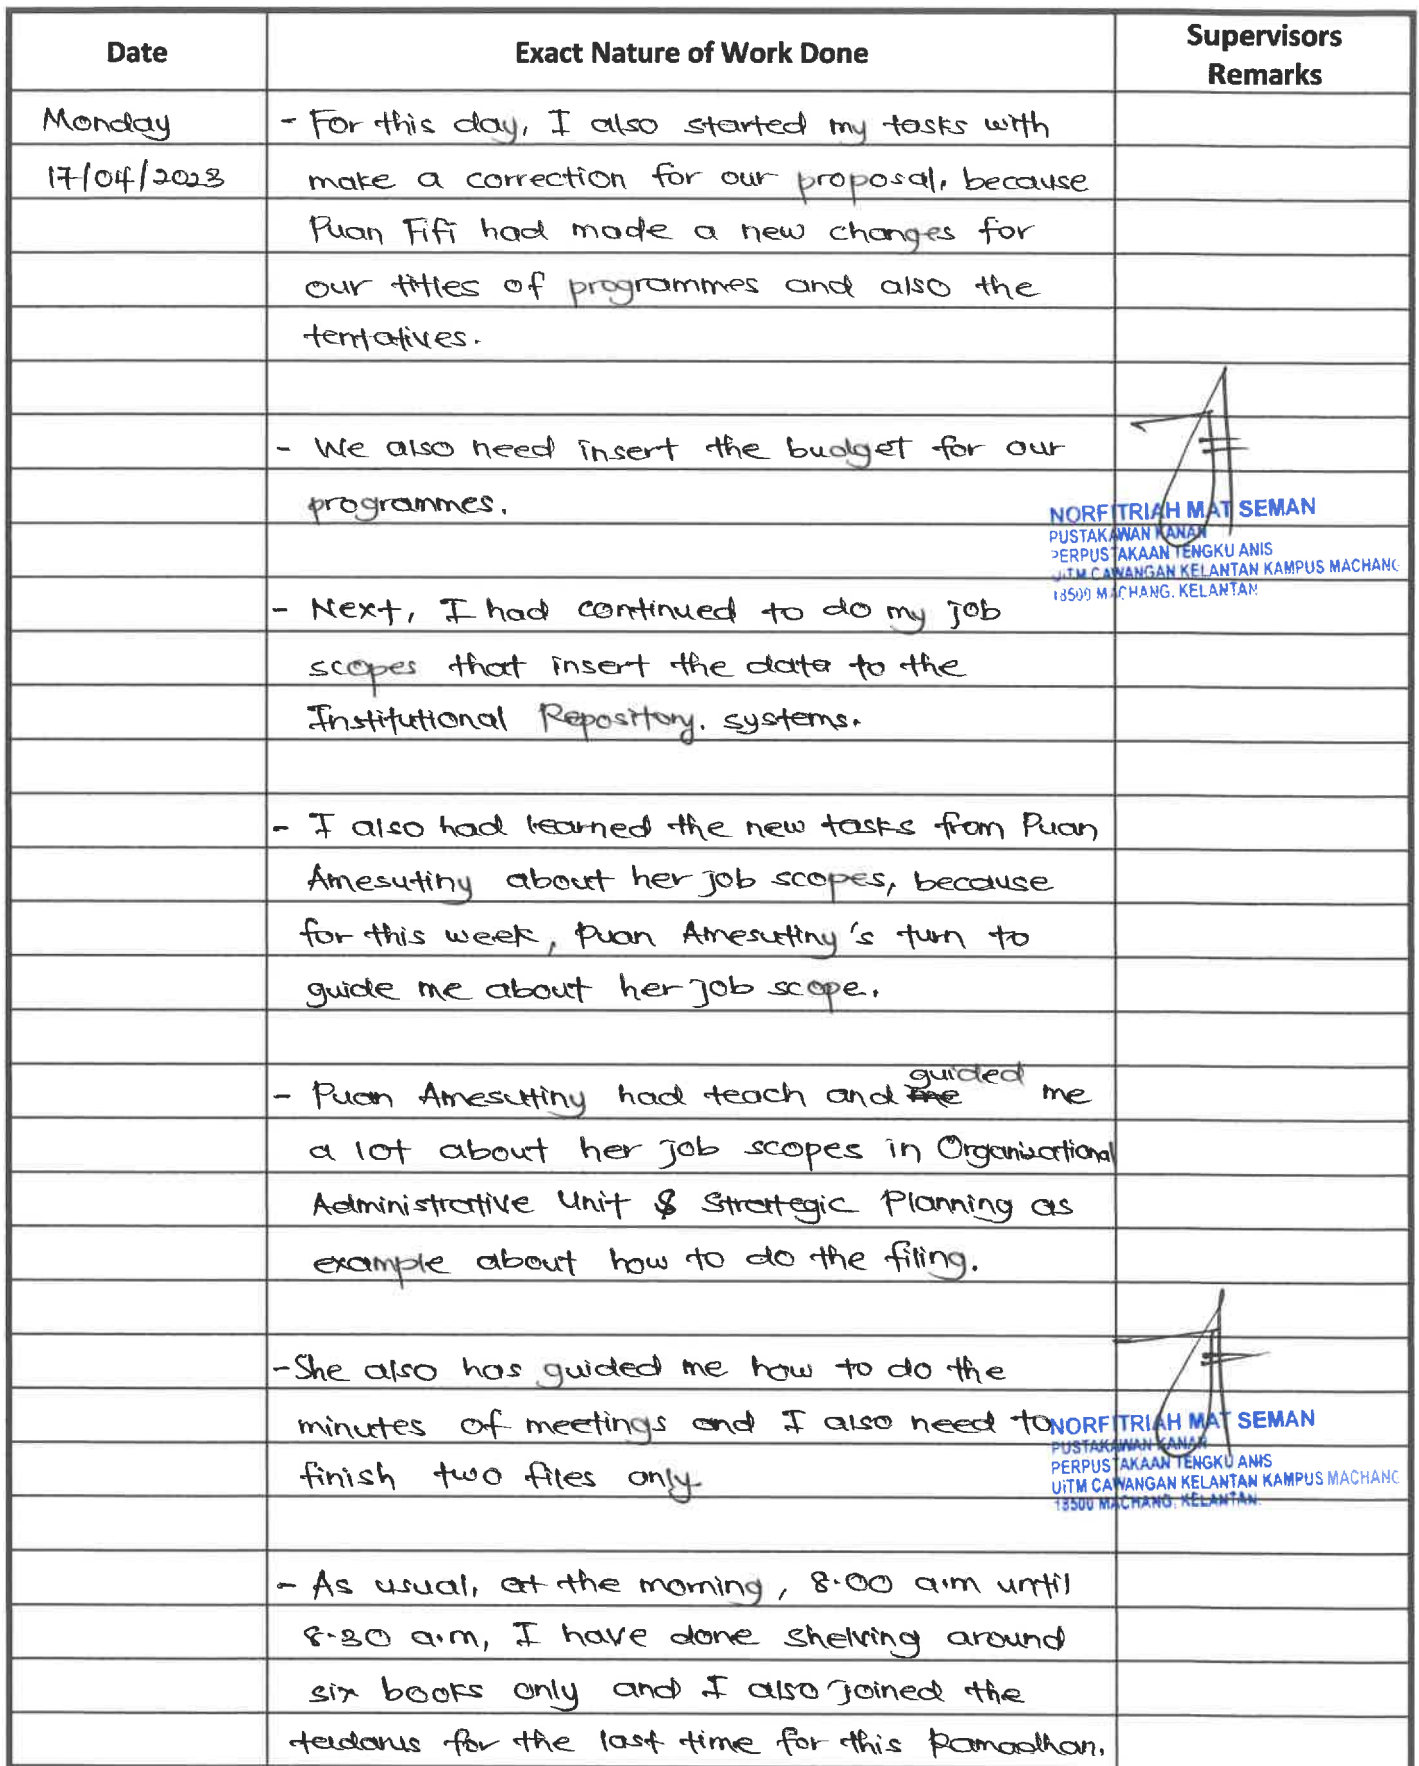 Date
Exact Nature of Work Done
Supervisors
Remarks
Monday
- For this day, I also started my tasks with
17/04/2023
make a correction for our proposal, because
Puan Fifi had made a new changes for
our titles of programmes and also the
tentatives.
- We also need insert the budget for our
programmes.
NORFITRIAH MAT SEMAN
PUSTAKAWAN KANAN
PERPUSTAKAAN TENGKU ANIS
UiTM CAWANGAN KELANTAN KAMPUS MACHANG
18500 MACHANG, KELANTAN
- Next, I had continued to do my job
scopes that insert the data to the
Institutional Repository. systems.
- I also had learned the new tasks from Puan
Amesutiny about her job scopes, because
for this week, Puan Amesutiny's turn to
guide me about her job scope.
- Puan Amesutiny had teach and me guided me
a lot about her job scopes in Organisational
Administrative Unit & Strategic Planning as
example about how to do the filing.
- She also has guided me how to do the
minutes of meetings and I also need to
finish two files only
NORFITRIAH MAT SEMAN
PUSTAKAWAN KANAN
PERPUSTAKAAN TENGKU ANIS
UiTM CAWANGAN KELANTAN KAMPUS MACHANG
18500 MACHANG, KELANTAN.
- As usual, at the morning, 8.00 a.m until
8.30 a.m, I have done shelving around
six books only and I also joined the
tadarus for the last time for this Ramadhan.